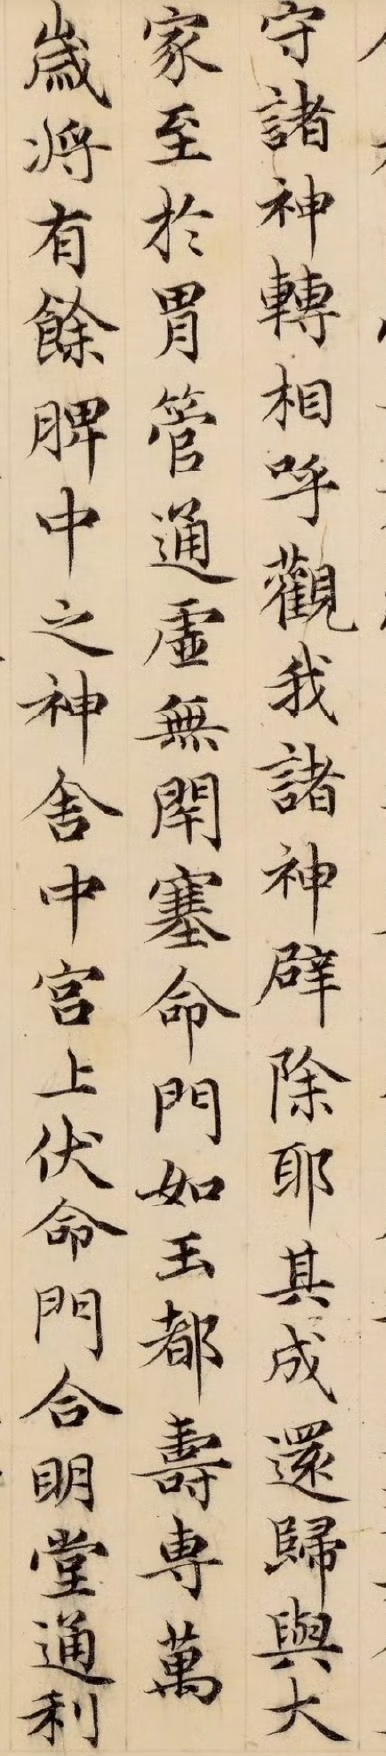 守諸神轉相呼觀我諸神辟除耶其成還歸與大
家至於胃管通虛無閇塞命門如玉都壽專萬
歲將有餘脾中之神舍中宮上伏命門合明堂通利